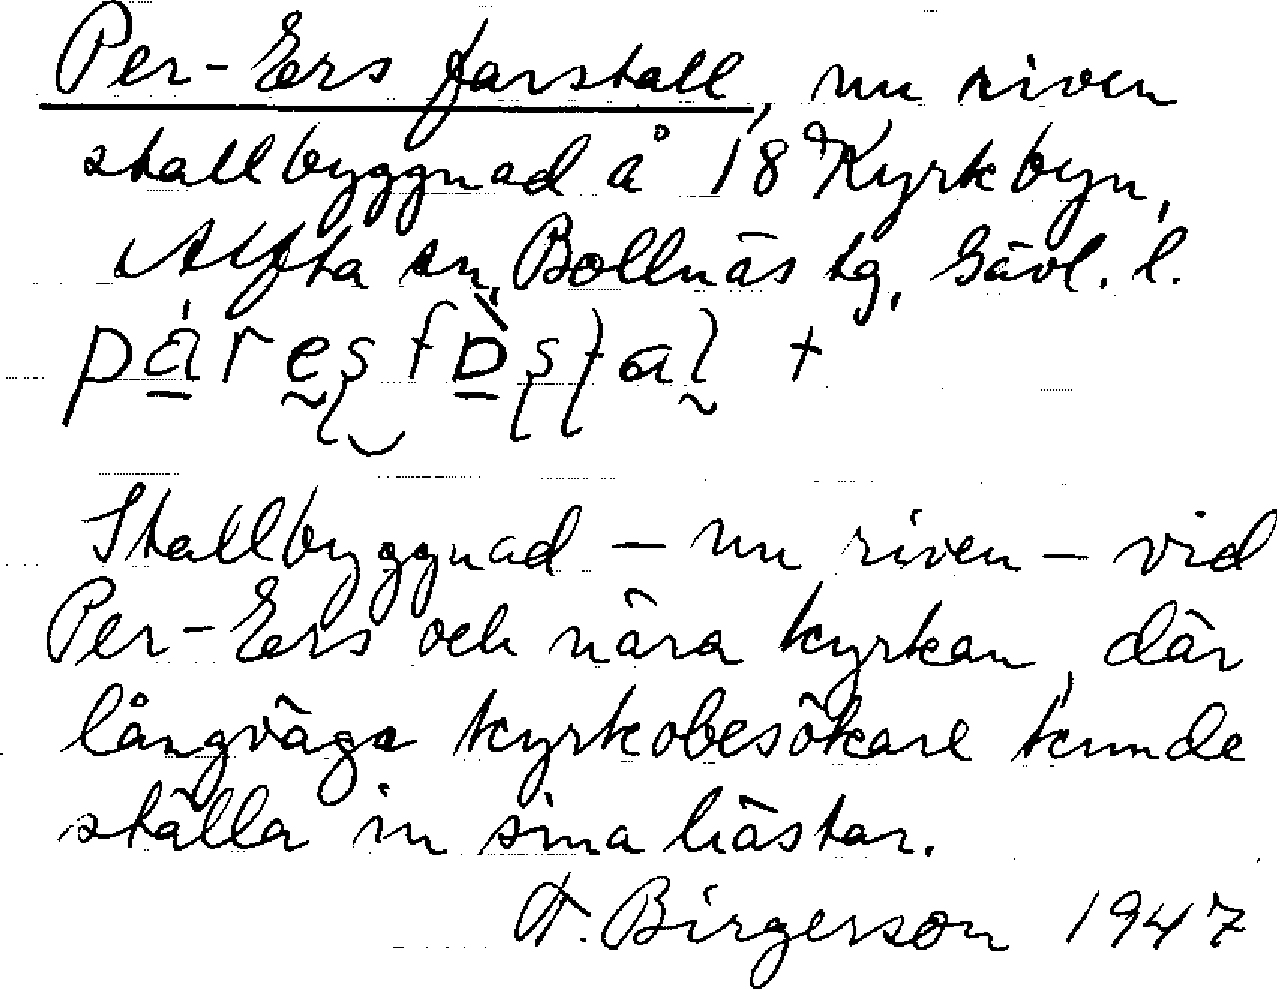 Per-Ers farstall, nu riven
stallbyggnad å 18 Kyrkbyn,
Alfta sn, Bollnäs tg, Gävl. l.
Stallbyggnad – nu riven – vid
Per-Ers och nära kyrkan, där
långväga kyrkobesökare kunde
ställa in sina hästar.
A. Birgerson 1947